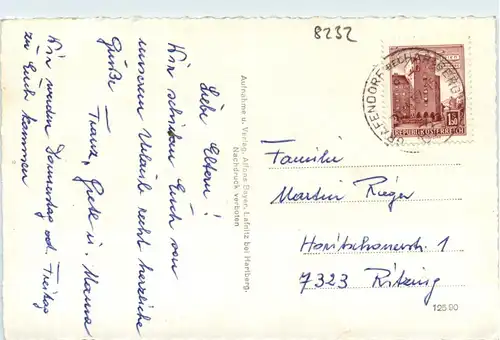 Liebe Eltern!
Wir schicken Euch von
unserem Urlaub recht herzliche
Grüße
Franz, Grete u. Mama
Wir werden Donnerstag od. Freitag
zu Euch kommen
Aufnahme u. Verlag: Alfons Bayer, Lafnitz bei Hartberg.
Nachdruck verboten
8232
GRAFENDORF BEI HARTBERG
1.50
REPUBLIK ÖSTERREICH
Familie
Martin Rieger
Horitschonerstr. 1
7323 Ritzing
125 90